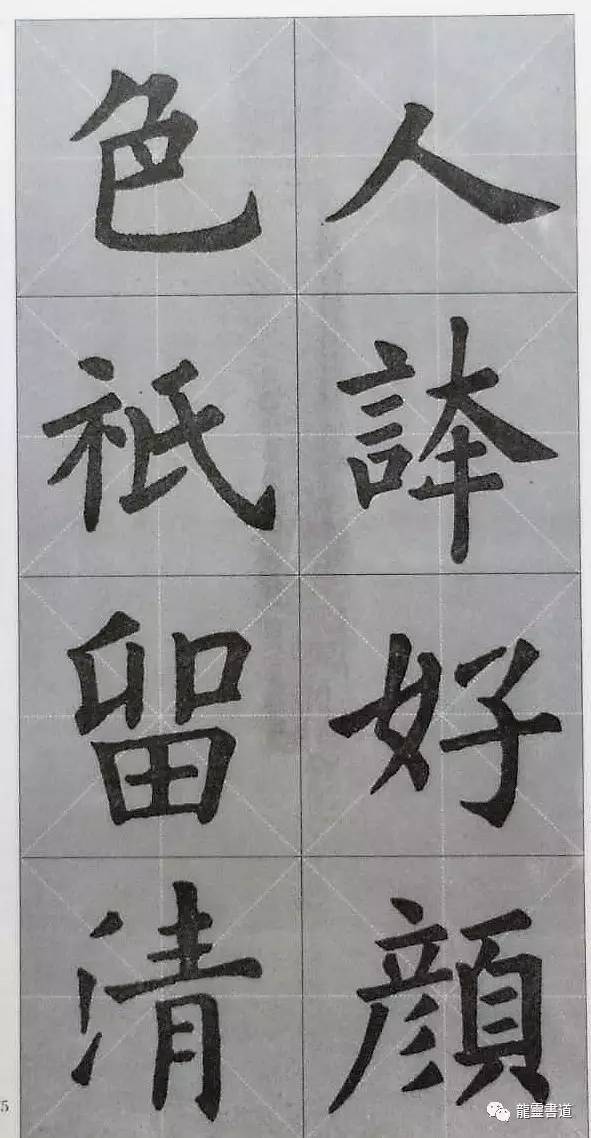 人誇好顔
色祇留清
5
龍靈書道